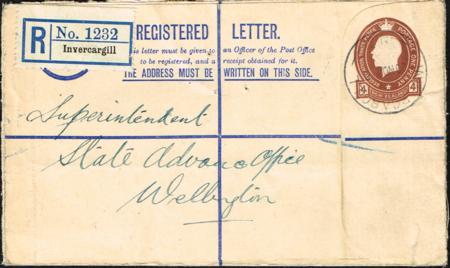 R No. 1232
Invercargill
REGISTERED LETTER.
letter must be given to an Officer of the Post Office
to be registered, and a receipt obtained for it.
THE ADDRESS MUST BE WRITTEN ON THIS SIDE.
POSTAGE
4 NEW ZEALAND 4
Superintendent
State Advance Office
Wellington